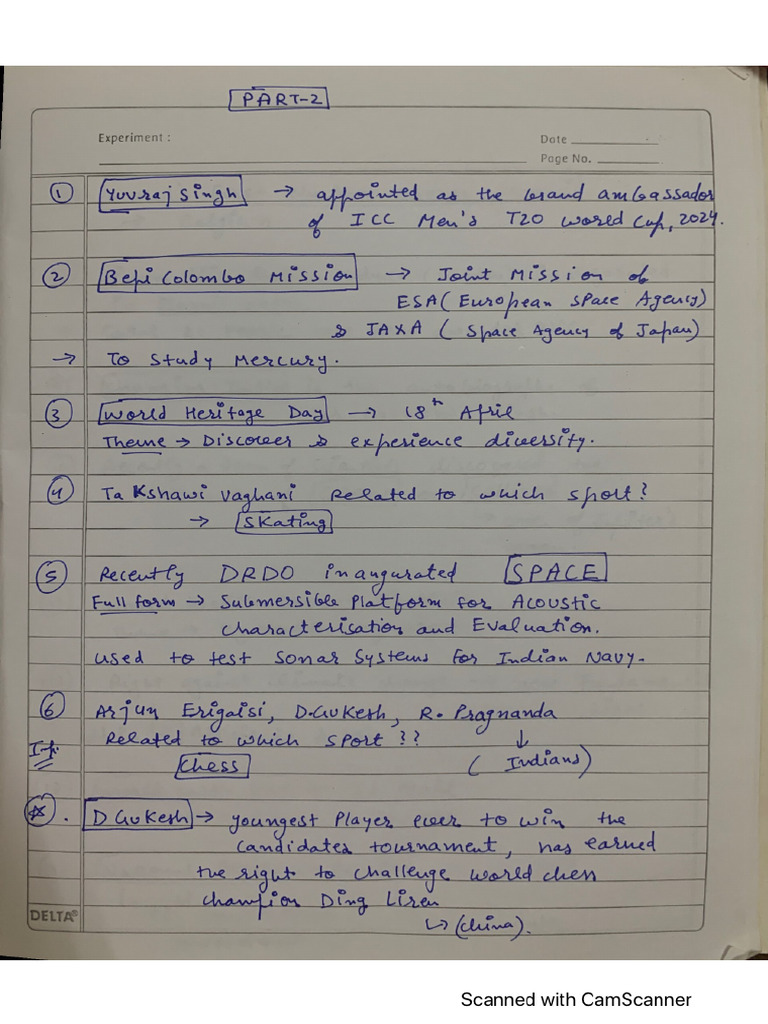 PART-2
Experiment :
Date
Page No.
① Yuvraj Singh → appointed as the brand ambassador
of ICC Men's T20 World Cup, 2024.
② Bepi Colombo Mission → Joint Mission of
ESA (European Space Agency)
& JAXA (Space Agency of Japan)
→ To Study Mercury.
③ World Heritage Day → 18th April
Theme → Discover & experience diversity.
④ Takshawi Vaghani Related to which sport?
→ Skating
⑤ Recently DRDO inaugurated SPACE
Full form → Submersible Platform for Acoustic
Characterisation and Evaluation.
Used to test Sonar Systems for Indian Navy.
⑥ Arjun Erigaisi, D.Gukesh, R. Pragnanda
Related to which sport ??
↓
Chess
(Indians)
D Gukesh → youngest Player ever to win the
candidates tournament, has earned
the right to challenge world chess
champion Ding Liren
↳ (China).
DELTA®
Scanned with CamScanner